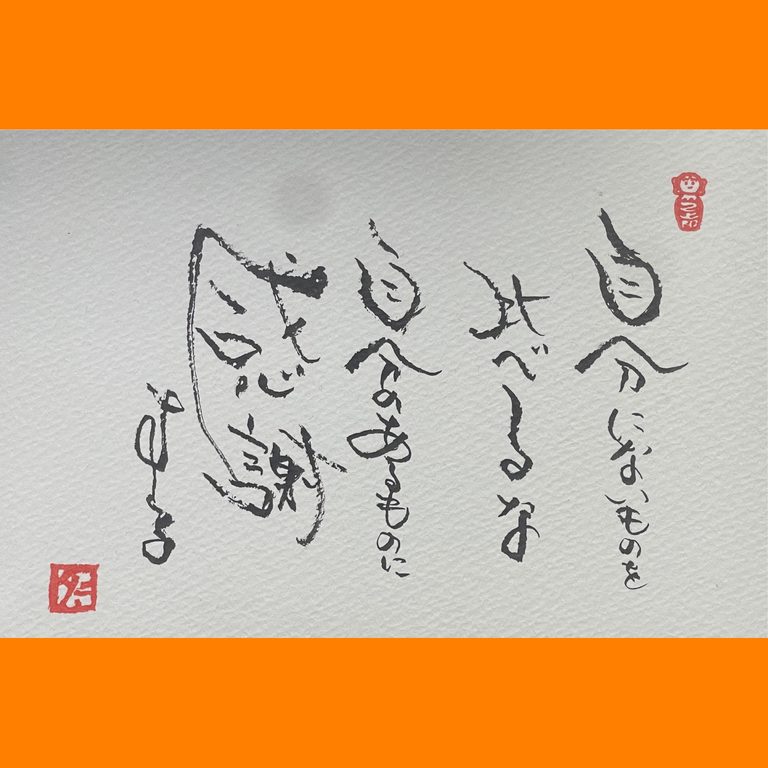 自分にないものを
比べるな
自分のあるものに
感謝